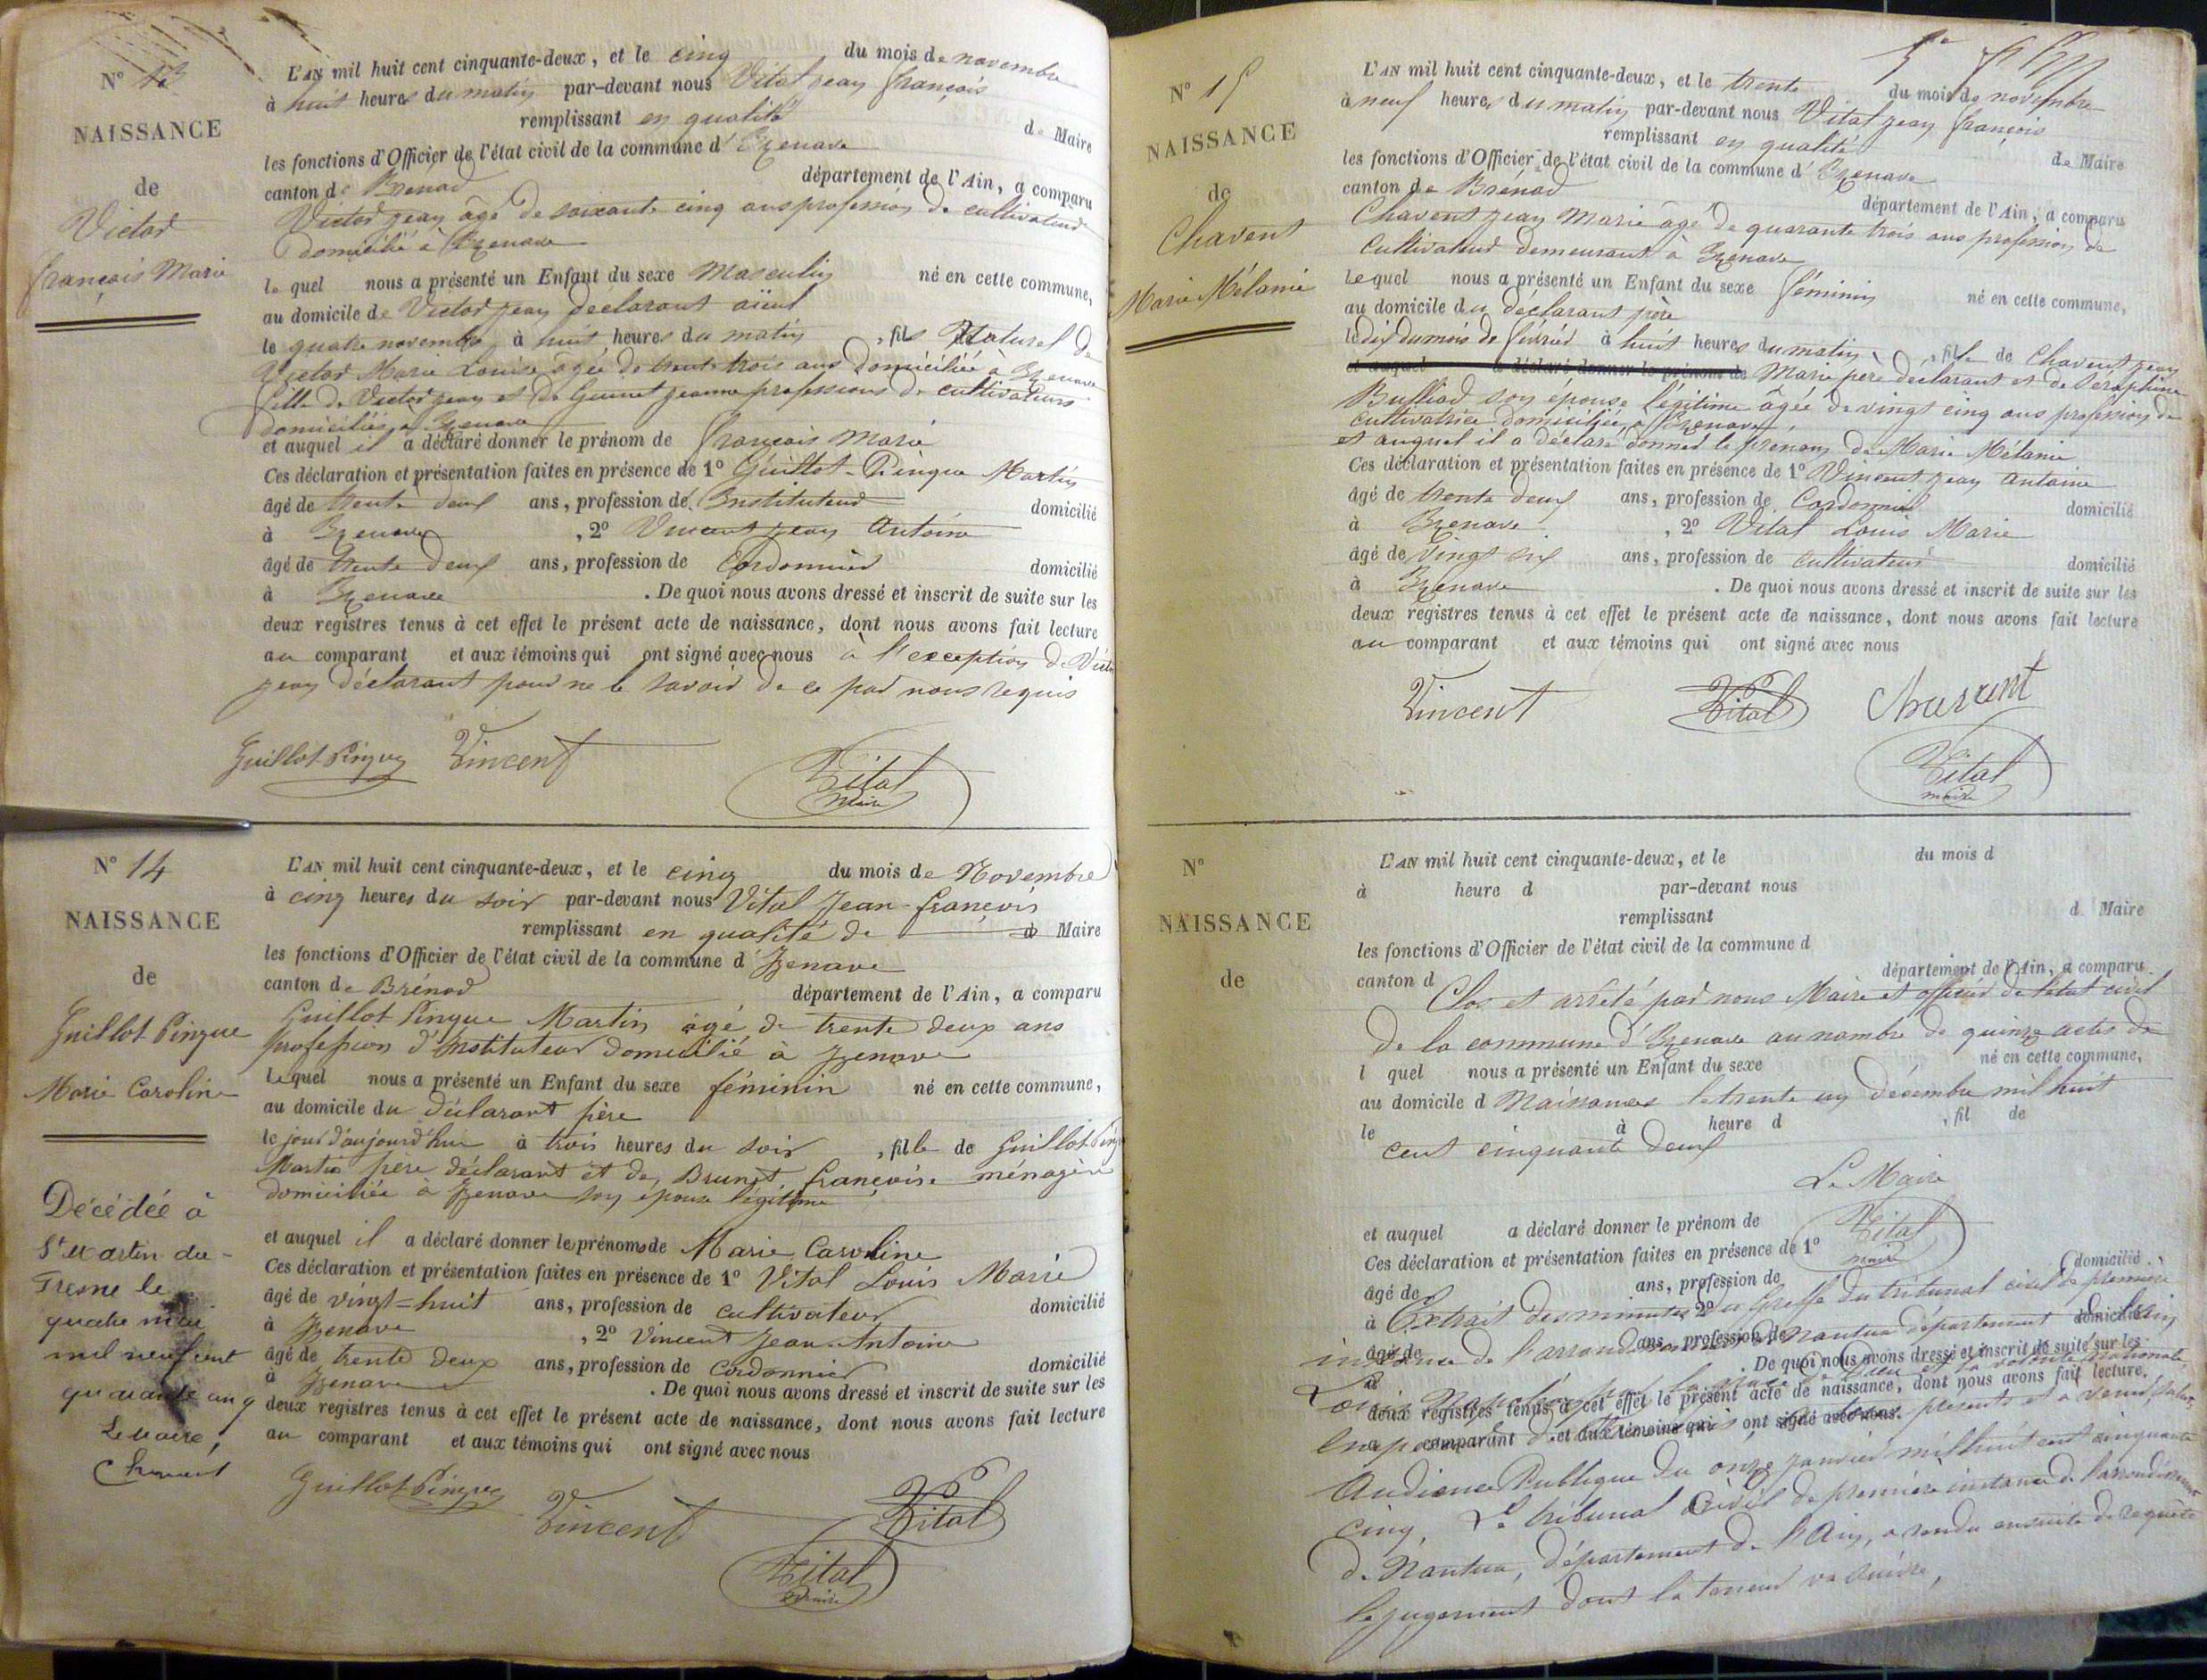 N° 13
NAISSANCE
de
Victor
françois Marie
L'AN mil huit cent cinquante-deux, et le cinq du mois de novembre
à huit heures du matin par-devant nous Vital jean françois
remplissant en qualité de Maire
les fonctions d'Officier de l'état civil de la commune d'Izenave
canton de Brénod département de l'Ain, a comparu
Victor jean âgé de soixante cinq ans profession de cultivateur
domicilié à Izenave
lequel nous a présenté un Enfant du sexe Masculin né en cette commune,
au domicile de Victor jean declarant aïeul
le quatre novembre à huit heures du matin, fils Naturel de
Victor Marie Louise âgée de trente trois ans domiciliée à Izenave
fille de Victor jean et de Guinet jeanne professions de cultivateurs
domiciliés à Izenave
et auquel il a déclaré donner le prénom de françois Marie
Ces déclaration et présentation faites en présence de 1° Guillot-Pingue Martin
âgé de trente deux ans, profession de Instituteur domicilié
à Izenave, 2° Vincent jean Antoine
âgé de trente deux ans, profession de Cordonnier domicilié
à Izenave. De quoi nous avons dressé et inscrit de suite sur les
deux registres tenus à cet effet le présent acte de naissance, dont nous avons fait lecture
au comparant et aux témoins qui ont signé avec nous à l'exception de Victor
jean déclarant pour ne le savoir de ce par nous requis
Guillot Pingue Vincent Vital
Maire
N° 14
NAISSANCE
de
Guillot Pingue
Marie Caroline
Décédée à
St Martin du-
Fresne le
quatre mai
mil neuf cent
quarante cinq
Le Maire,
L'AN mil huit cent cinquante-deux, et le cinq du mois de Novembre
à cinq heures du soir par-devant nous Vital Jean-françois
remplissant en qualité de d Maire
les fonctions d'Officier de l'état civil de la commune d'Izenave
canton de Brénod département de l'Ain, a comparu
Guillot Pingue Martin âgé de trente deux ans
profession d'Instituteur domicilié à Izenave
lequel nous a présenté un Enfant du sexe féminin né en cette commune,
au domicile du déclarant père
le jour d'aujourd'hui à trois heures du soir, fille de Guillot Pingue
Martin père déclarant et de Brunet françoise ménagère
domiciliée à Izenave son épouse légitime
et auquel il a déclaré donner les prénoms de Marie Caroline
Ces déclaration et présentation faites en présence de 1° Vital Louis Marie
âgé de vingt=huit ans, profession de cultivateur domicilié
à Izenave, 2° Vincent Jean-Antoine
âgé de trente deux ans, profession de Cordonnier domicilié
à Izenave. De quoi nous avons dressé et inscrit de suite sur les
deux registres tenus à cet effet le présent acte de naissance, dont nous avons fait lecture
au comparant et aux témoins qui ont signé avec nous
Guillot Pingue Vincent Vital
Vital
Maire
N° 15
NAISSANCE
de
Chavent
Marie Mélanie
L'AN mil huit cent cinquante-deux, et le trente du mois de novembre
à neuf heures du matin par-devant nous Vital jean françois
remplissant en qualité de Maire
les fonctions d'Officier de l'état civil de la commune d'Izenave
canton de Brénod département de l'Ain, a comparu
Chavent jean Marie âgé de quarante trois ans profession de
cultivateur demeurant à Izenave
lequel nous a présenté un Enfant du sexe féminin né en cette commune,
au domicile du déclarant père
le dix du mois de février à huit heures du matin, fille de Chavent jean
et auquel a déclaré donner le prénom de Marie père déclarant et de Séraphine
Bulliod son épouse légitime âgée de vingt cinq ans profession de
cultivatrice domiciliée à Izenave
et auquel il a déclaré donner le prenom de Marie Mélanie
Ces déclaration et présentation faites en présence de 1° Vincent jean antoine
âgé de trente deux ans, profession de Cordonnier domicilié
à Izenave, 2° Vital Louis Marie
âgé de vingt six ans, profession de cultivateur domicilié
à Izenave. De quoi nous avons dressé et inscrit de suite sur les
deux registres tenus à cet effet le présent acte de naissance, dont nous avons fait lecture
au comparant et aux témoins qui ont signé avec nous
Vincent Vital Chavent
Vital
maire
N°
NAISSANCE
de
L'AN mil huit cent cinquante-deux, et le du mois d
à heure d par-devant nous
remplissant d Maire
les fonctions d'Officier de l'état civil de la commune d
canton d département de l'Ain, a comparu
Clos et arrêté par nous Maire et officier de l'état civil
de la commune d'Izenave au nombre de quinze actes de
l quel nous a présenté un Enfant du sexe né en cette commune,
au domicile d Naissances le trente un décembre mil huit
le à heure d, fil de
cent cinquante deux
Le Maire
Vital
maire
et auquel a déclaré donner le prénom de
Ces déclaration et présentation faites en présence de 1°
âgé de ans, profession de domicilié
à , 2°
Extrait des minutes du Greffe du tribunal civil de première
âgé de ans, profession de domicilié
instance de l'arrondissement de Nantua département de l'Ain
à . De quoi nous avons dressé et inscrit de suite sur les
Louis Napoléon par la grace de Dieu et la volonté nationale
deux registres tenus à cet effet le présent acte de naissance, dont nous avons fait lecture.
Empereur des français, à tous présents et à venir, salut
a comparant et aux témoins qui ont signé avec nous.
Audience Publique du onze janvier mil huit cent cinquante
cinq, Le tribunal Civil de première instance de l'arrondissement
de Nantua, département de l'Ain, a rendu ensuite de requête
le jugement dont la teneur va suivre,